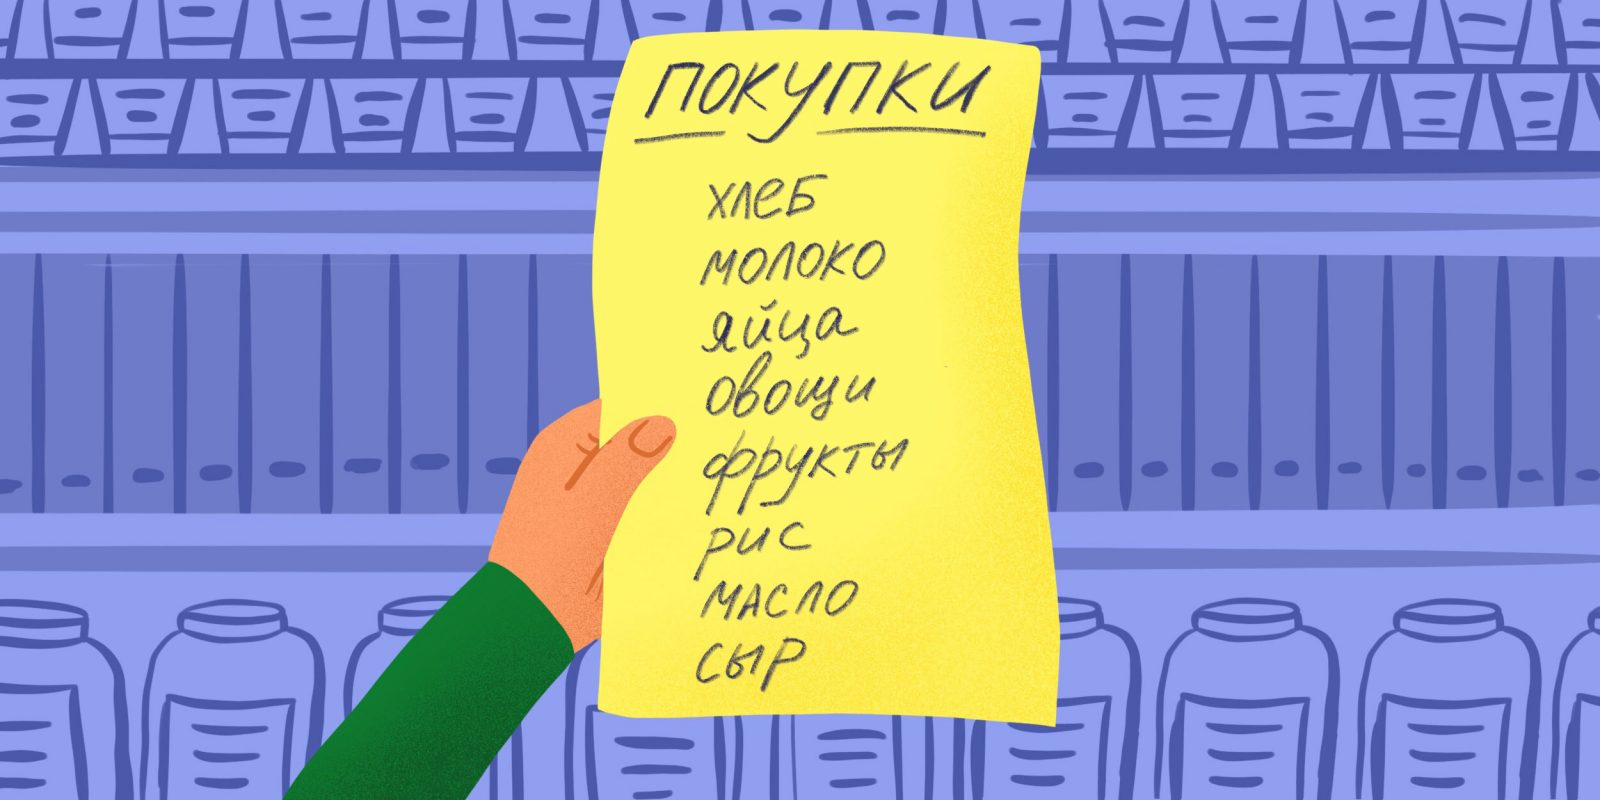 ПОКУПКИ
хлеб
молоко
яйца
овощи
фрукты
рис
масло
сыр